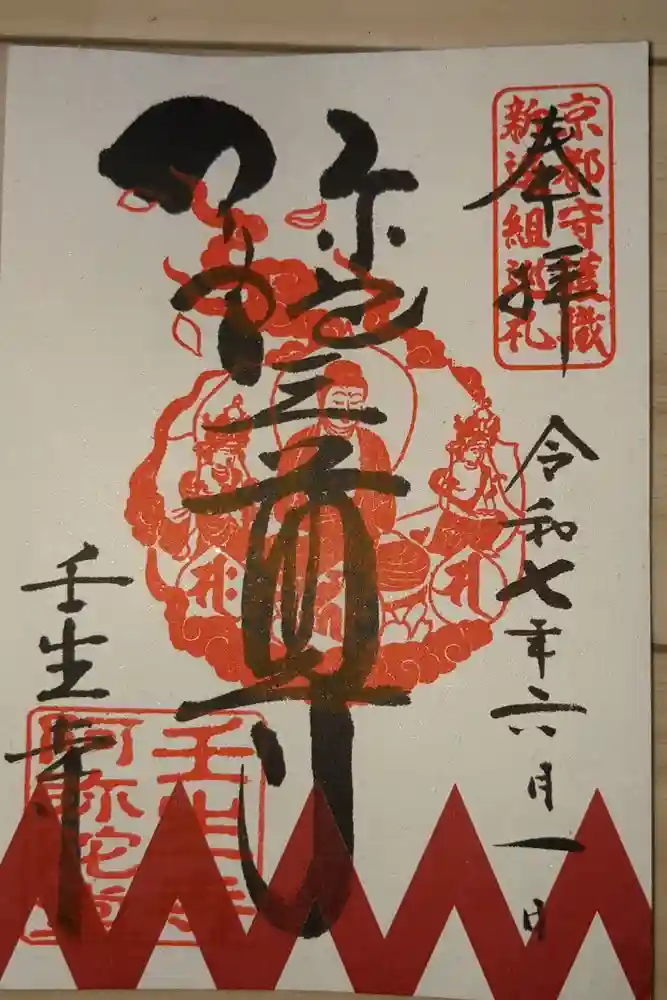 奉拝
京都守護職
新選組巡礼
令和七年六月一日
阿弥陀三尊
壬生寺
壬生寺
阿弥陀堂